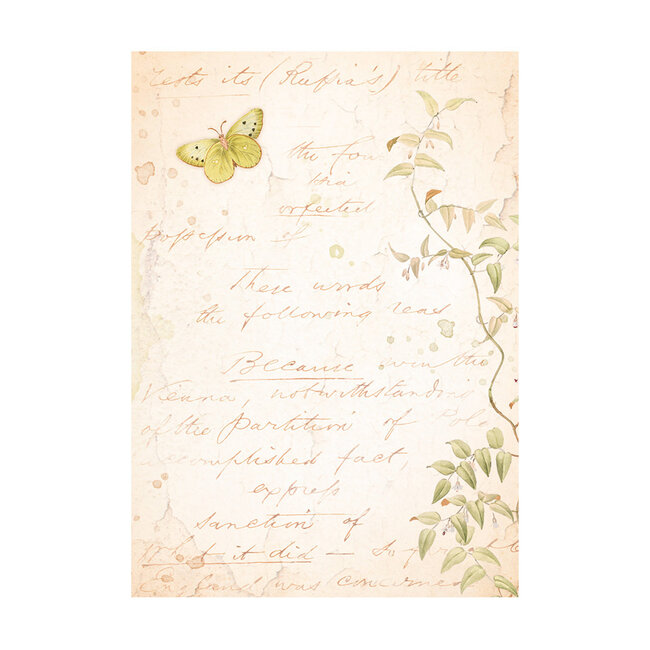 rests its (Russia's) title
the four
his
orfected
possession of
These words
the following reas
Because even the
Vienna, notwithstanding
of the Partition of Pola
accomplished fact,
express
sanction of
What it did — so
England was concerned